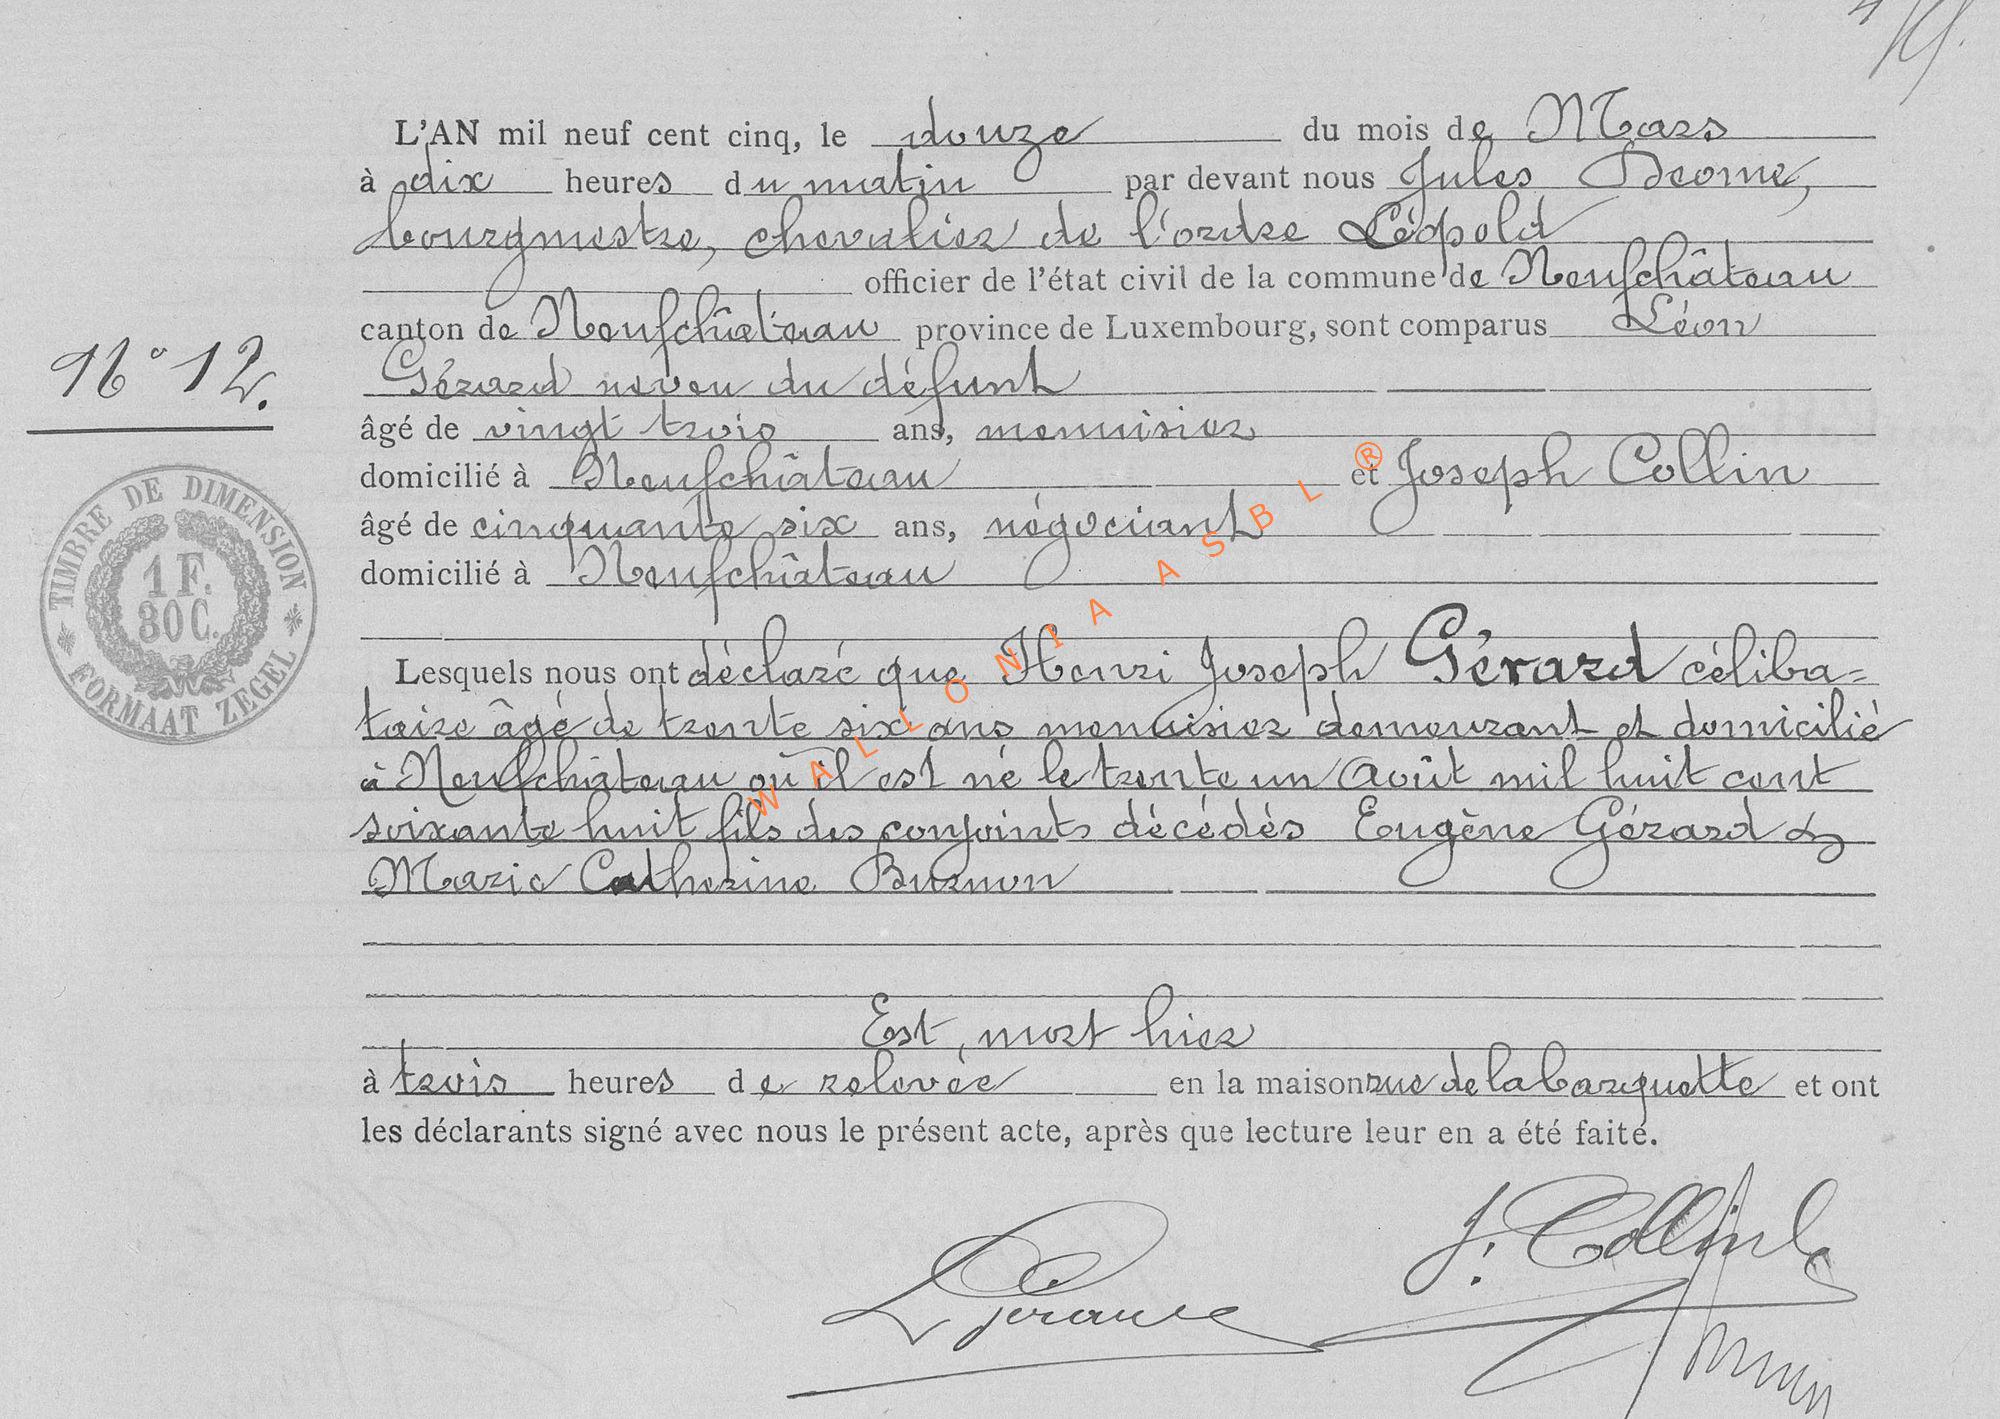 L'AN mil neuf cent cinq, le douze du mois de Mars
à dix heures du matin par devant nous Jules Deome,
bourgmestre, chevalier de l'ordre Léopold
officier de l'état civil de la commune de Neufchâteau
canton de Neufchâteau province de Luxembourg, sont comparus Léon
Gérard neveu du défunt
N° 12.
âgé de vingt trois ans, menuisier
domicilié à Neufchâteau et Joseph Collin
âgé de cinquante six ans, négociant
domicilié à Neufchâteau
TIMBRE DE DIMENSION
1 F.
80 C.
FORMAAT ZEGEL
Lesquels nous ont déclaré que Henri Joseph Gérard céliba=
taire âgé de trente six ans menuisier demeurant et domicilié
à Neufchâteau où il est né le trente un Août mil huit cent
soixante huit fils des conjoints décédés Eugène Gérard &
Marie Catherine Burnon
Est, mort hier
à trois heures de relevée en la maison rue de la Barquette et ont
les déclarants signé avec nous le présent acte, après que lecture leur en a été faite.
J. Collin
L Gérard
WALLONIA ASBL ®